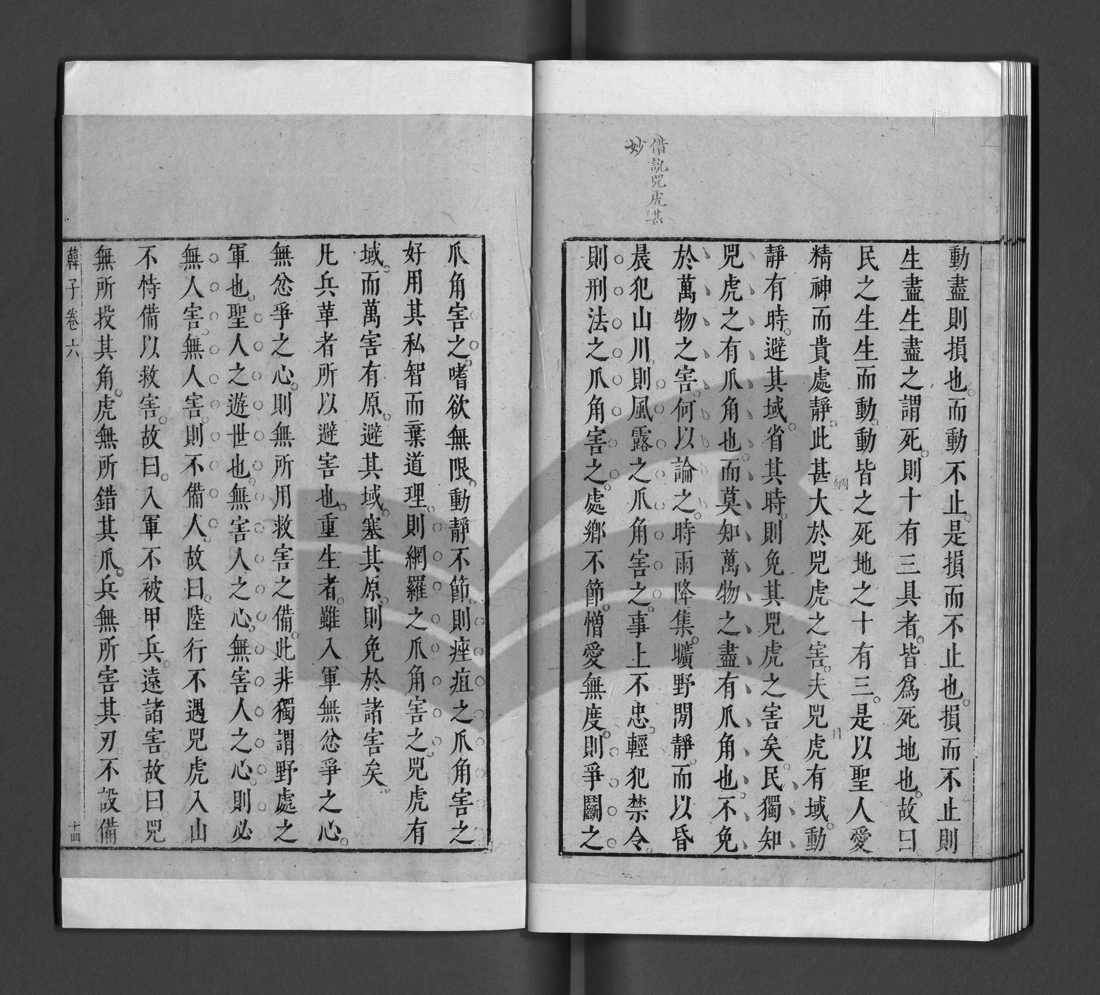 借說兕虎甚
妙
動盡則損也。而動不止。是損而不止也。損而不止則
生盡。生盡之謂死。則十有三具者。皆爲死地也。故曰。
民之生生而動。動皆之死地之十有三。是以聖人愛
精神而貴處靜。此甚大於兕虎之害。夫兕虎有域。動
靜有時。避其域。省其時。則免其兕虎之害矣。民獨知
兕虎之有爪角也。而莫知萬物之盡有爪角也。不免
於萬物之害。何以論之。時雨降集。曠野閒靜。而以昏
晨犯山川。則風露之爪角害之。事上不忠。輕犯禁令。
則刑法之爪角害之。處鄉不節。憎愛無度。則爭鬭之
爪角害之。嗜欲無限。動靜不節。則痤疽之爪角害之。
好用其私智而棄道理。則網羅之爪角害之。兕虎有
域。而萬害有原。避其域。塞其原。則免於諸害矣
凡兵革者所以避害也。重生者。雖入軍無忿爭之心。
無忿爭之心。則無所用救害之備。此非獨謂野處之
軍也。聖人之遊世也。無害人之心。無害人之心。則必
無人害。無人害。則不備人。故曰。陸行不遇兕虎。入山
不恃備以救害。故曰。入軍不被甲兵。遠諸害。故曰兕
無所投其角。虎無所錯其爪。兵無所害其刃。不設備
韓子卷六
十四